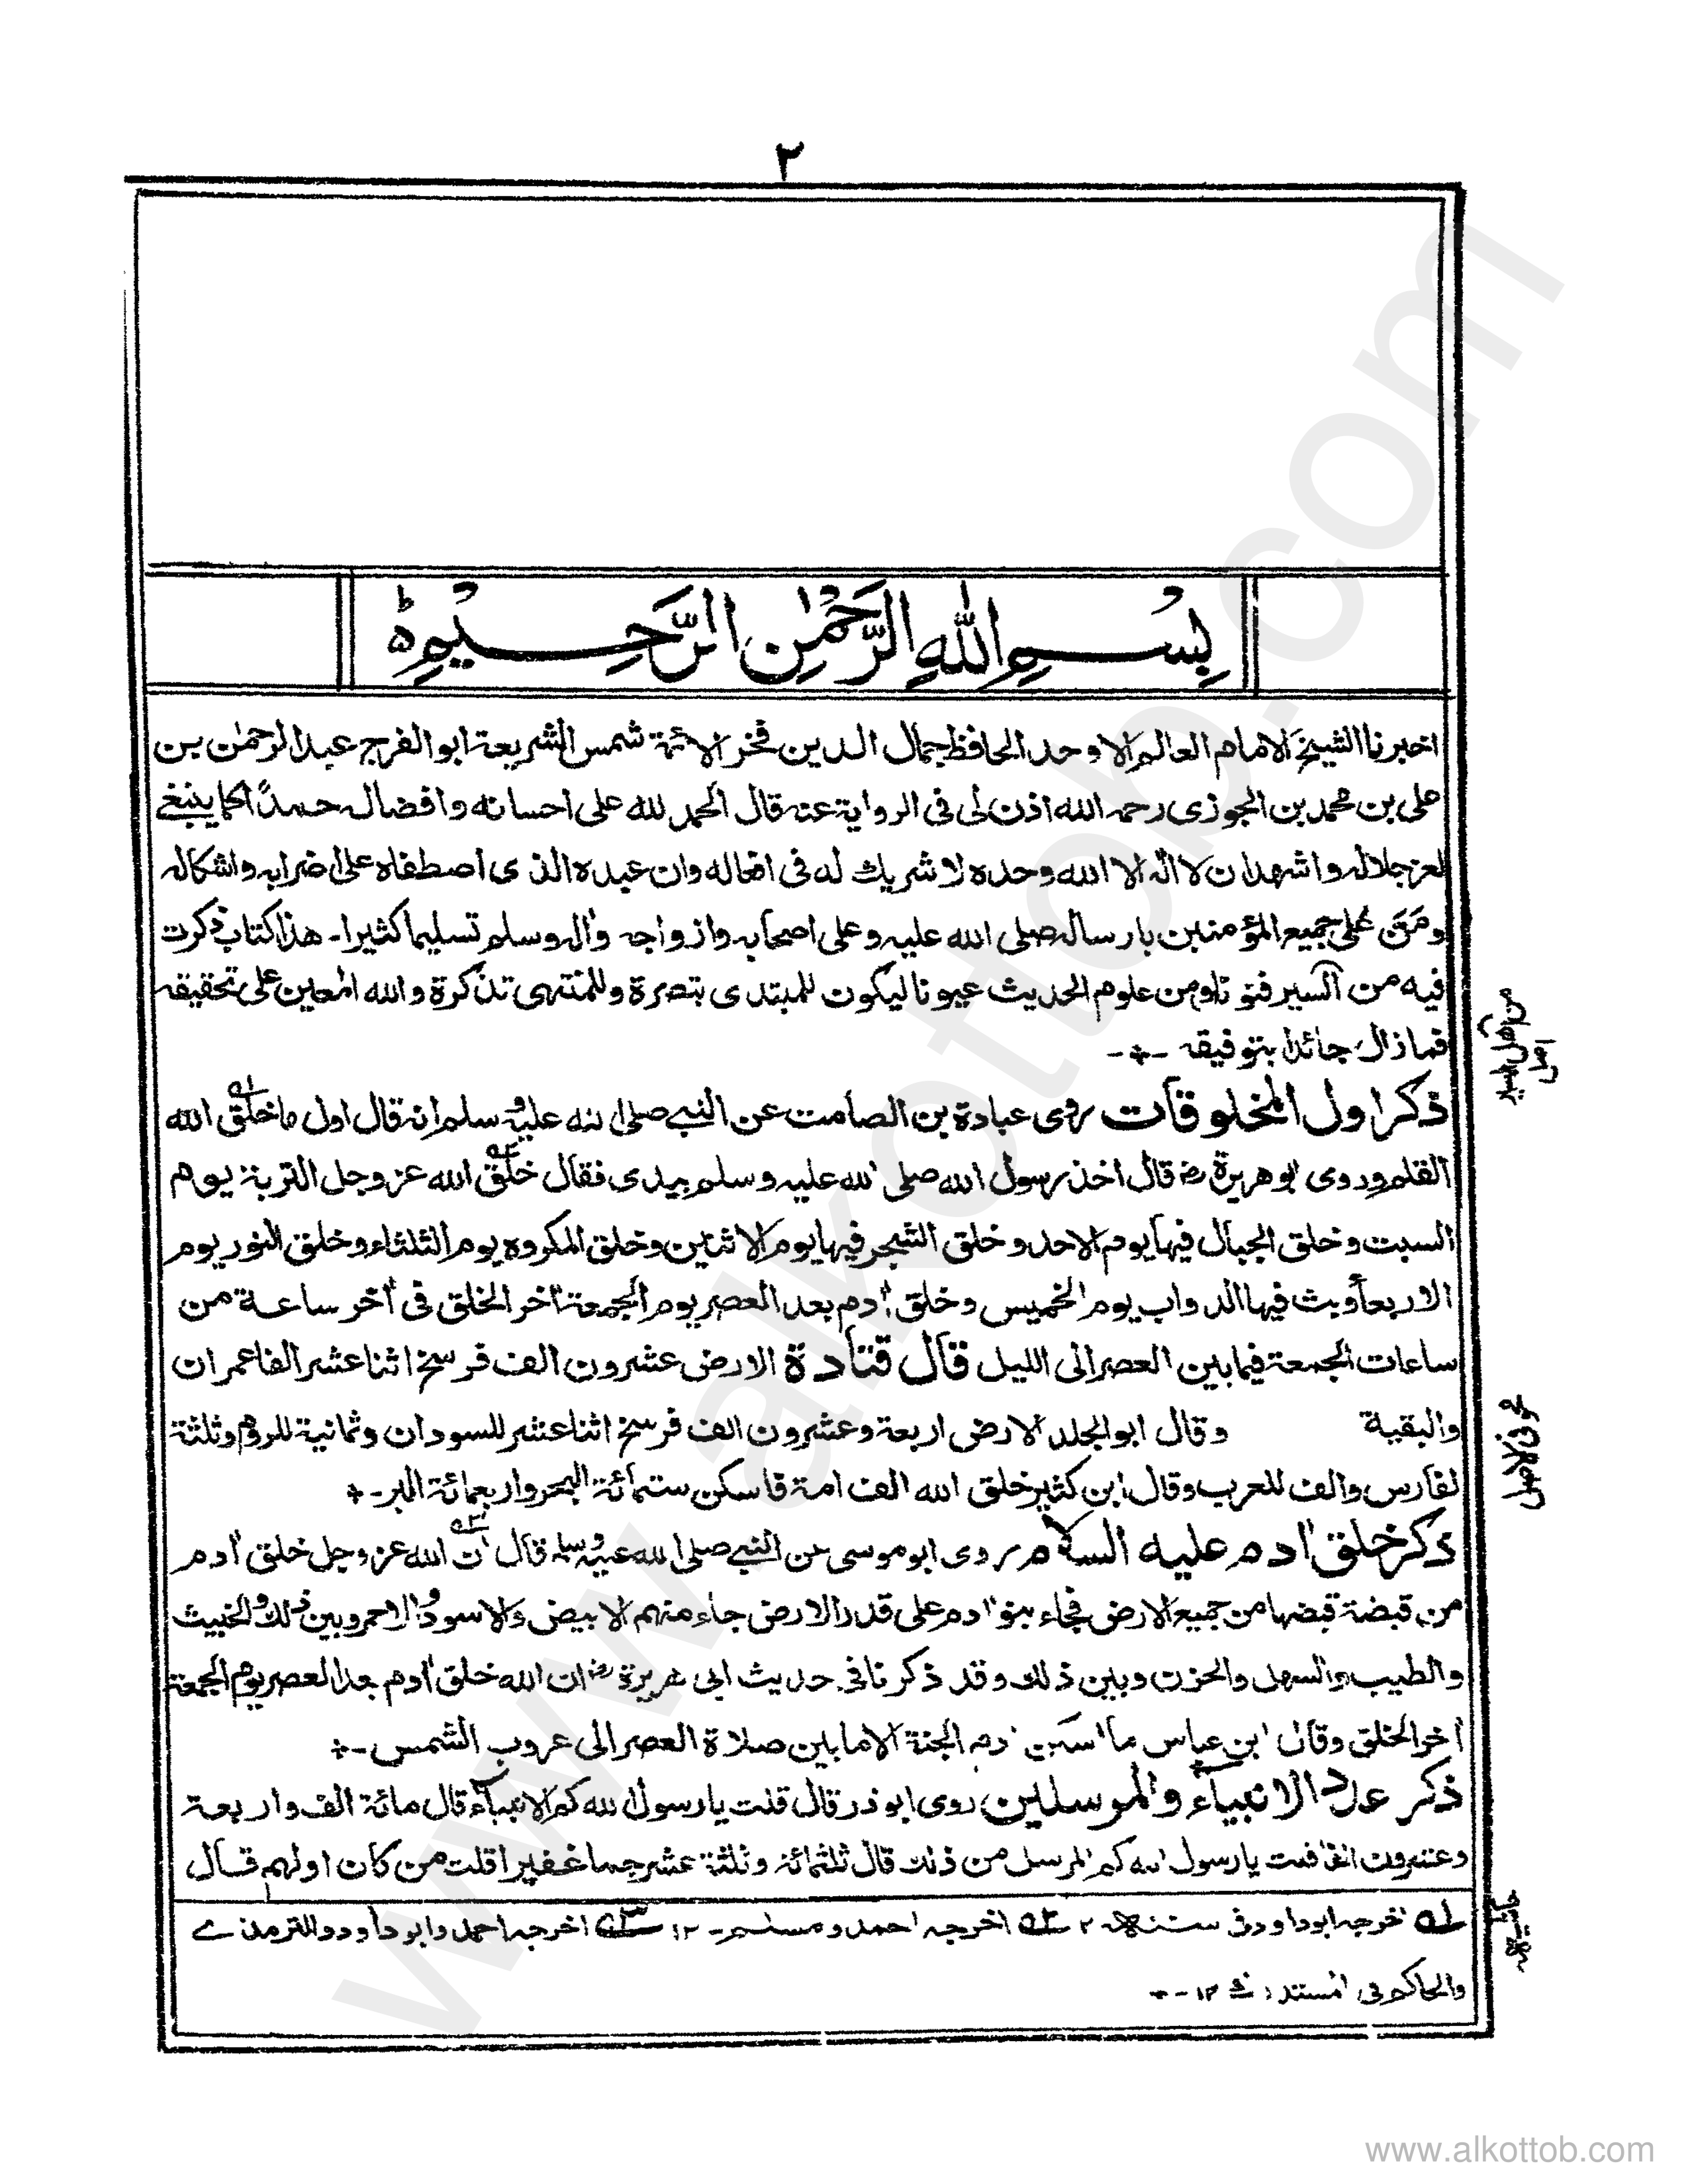 ٢
بِسْمِ اللهِ الرَّحْمٰنِ الرَّحِيْمِ ط
اخبرنا الشيخ الامام العالم الاوحد الحافظ جمال الدين فخر الائمة شمس الشريعة ابو الفرج عبد الرحمٰن بن
علی بن محمد بن الجوزی رحمه الله اذن لی فی الرواية عنه قال الحمد لله علی احسانه وافضاله حمدًا كما ينبغے
لعز جلاله واشهد ان لا اله الا الله وحده لا شريك له فی افعاله وان عبده الذی اصطفاه علی اضرابه واشكاله
ومَنَّ علی جميع المؤمنين بارساله صلی الله عليه وعلی اصحابه وازواجه واٰله وسلم تسليما كثيرا۔ هذا كتاب ذكرت
فيه من السير فنونا ومن علوم الحديث عيونا ليكون للمبتدی تبصرة وللمنتهی تذكرة والله المعين علی تحقيقه
فما زال جائدا بتوفيقه -+-
من اهل السير
اصل
ذكر اول المخلوقات روی عبادة بن الصامت عن النبے صلی الله عليه وسلم انه قال اول ما خلق الله
القلم وروی ابو هريرة رضـ قال اخذ رسول الله صلی الله عليه وسلم بيدی فقال خلق الله عز وجل التربة يوم
السبت وخلق الجبال فيها يوم الاحد وخلق الشجر فيها يوم الاثنين وخلق المكروه يوم الثلثاء وخلق النور يوم
الاربعاء وبث فيها الدواب يوم الخميس وخلق اٰدم بعد العصر يوم الجمعة اٰخر الخلق فی اٰخر ساعة من
ساعات الجمعة فيما بين العصر الی الليل قال قتادة الارض عشرون الف فرسخ اثنا عشر الفا عمران
والبقية وقال ابو الجلد الارض اربعة وعشرون الف فرسخ اثنا عشر للسودان وثمانية للروم وثلثة
محو فی الاصل
لفارس والف للعرب وقال ابن كثير خلق الله الف امة فاسكن ستمائة البحر واربعمائة البر۔+
ذكر خلق اٰدم عليه السلام روی ابو موسی عن النبے صلی الله عليه وسلم قال ان الله عز وجل خلق اٰدم
من قبضة قبضها من جميع الارض فجاء بنو اٰدم علی قدر الارض جاء منهم الابيض والاسود والاحمر وبين ذلك والخبيث
والطيب والسهل والحزن وبين ذلك وقد ذكرنا فی حديث ابی هريرة رضـ ان الله خلق اٰدم بعد العصر يوم الجمعة
اٰخر الخلق وقال ابن عباس ما سكن اٰدم الجنة الا ما بين صلاة العصر الی غروب الشمس۔+
ذكر عدد الانبياء والمرسلين روی ابو ذر قال قلت يا رسول الله كم الانبياء قال مائة الف واربعة
وعشرون الفا قلت يا رسول الله كم المرسل من ذلك قال ثلثمائة وثلثة عشر جما غفيرا قلت من كان اولهم قال
حاشيه
؎١ اخرجه ابو داود فی سننه ؎٢ اخرجه احمد ومسلم۔ ١٢ ؎٣ اخرجه احمد وابو داود والترمذے
والحاكم فی المستدرك ١٢ -+
www.alkottob.com
www.alkottob.com